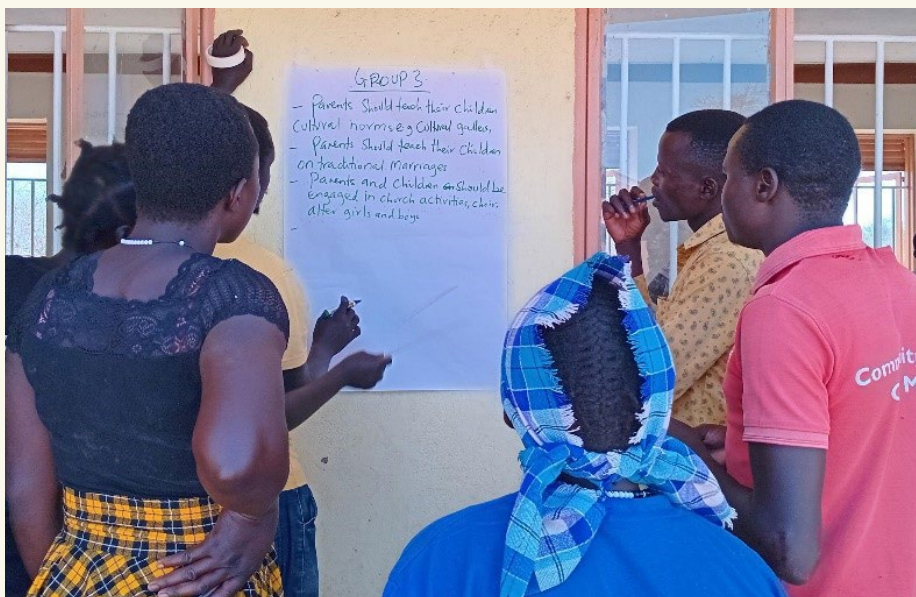 GROUP 3.
- Parents Should teach their children
Cultural norms e.g Cultural gallers,
- Parents Should teach their Children
on traditional Marriages
- Parents and Children Should be
Engaged in church activities, choir,
alter girls and boys
-
Com